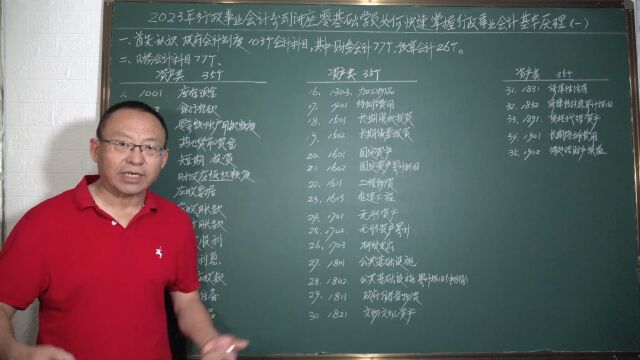 2023年行政事业会计系列讲座零基础学员如何快速掌握行政事业会计基本原理(一)
一、首先认识政府会计制度103个会计科目,其中财务会计77个,预算会计26个。
二、财务会计科目77个。
资产类 35个
1. 1001 库存现金
银行存款
零余额账户用款额度
其他货币资金
短期投资
财政应返还额度
应收票据
应收账款
账款
股利
利息
收款
准备
品
资产类 35个
16. 1303 加工物品
17. 1401 待摊费用
18. 1501 长期股权投资
19. 1502 长期债券投资
20. 1601 固定资产
21. 1602 固定资产累计折旧
22. 1611 工程物资
23. 1613 在建工程
24. 1701 无形资产
25. 1702 无形资产累计
26. 1703 研发支出
27. 1801 公共基础设施
28. 1802 公共基础设施累计折旧
29. 1811 政府储备物资
30. 1821 文物文化资产
资产类 35个
31. 1831 保障性住房
32. 1832 保障性住房累计折旧
33. 1891 受托代理资产
34. 1901 长期待摊费用
35. 1902 待处理财产损益